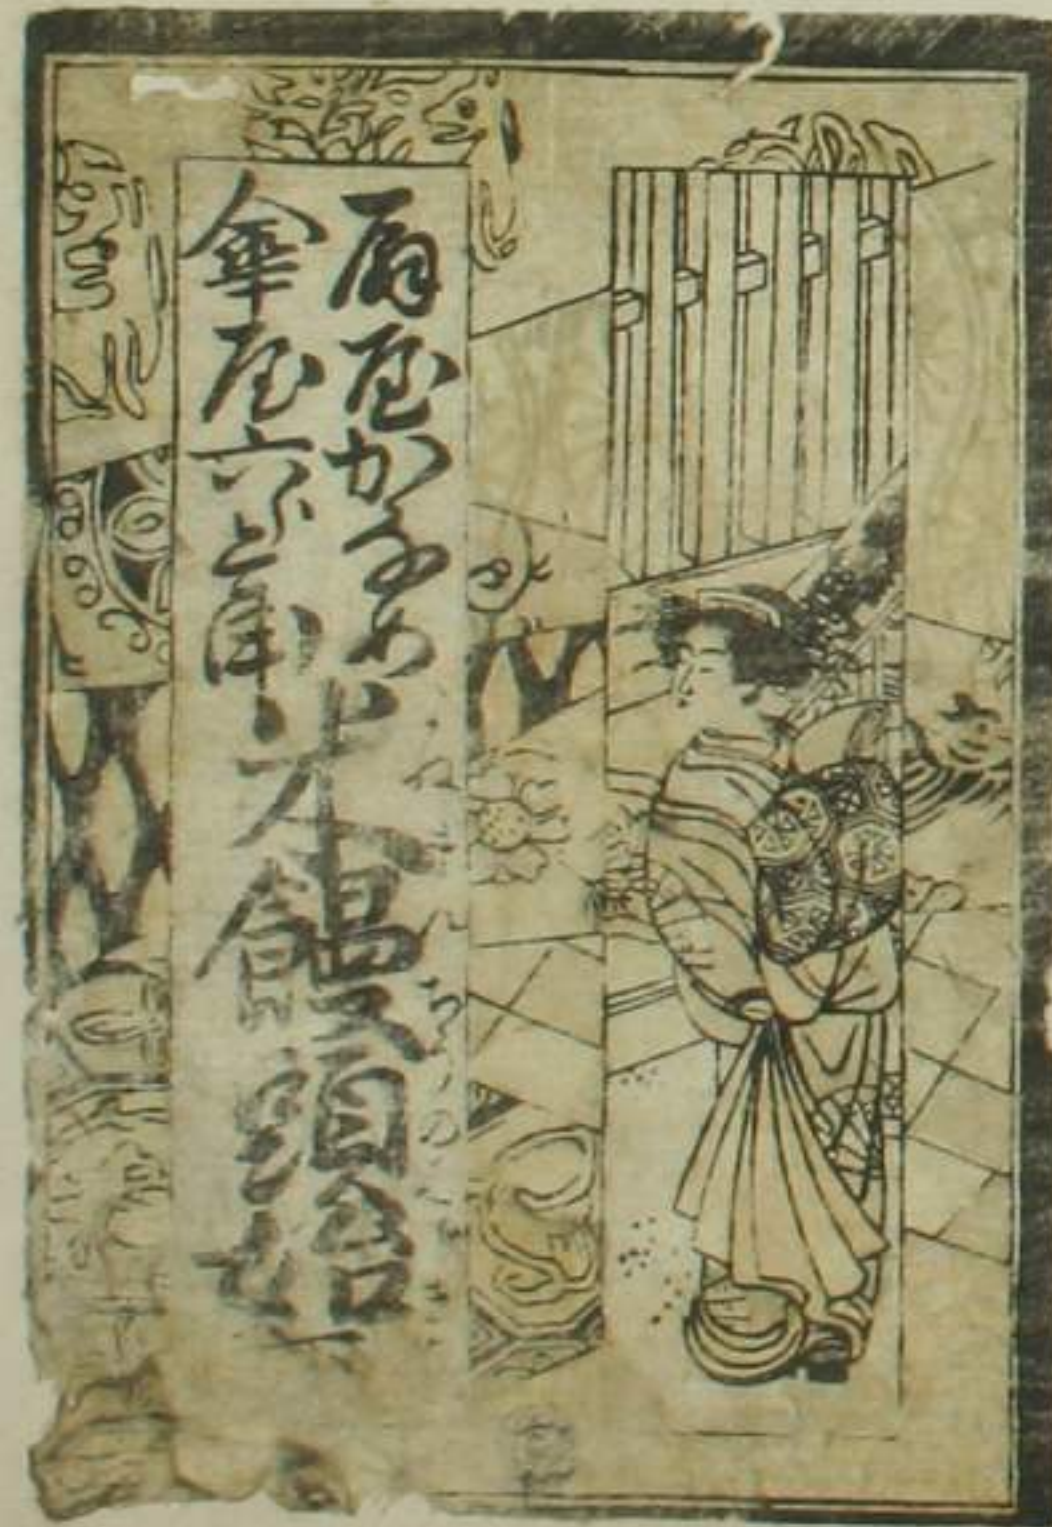 扇屋かなめ
傘屋六郎兵衛
米饅頭始